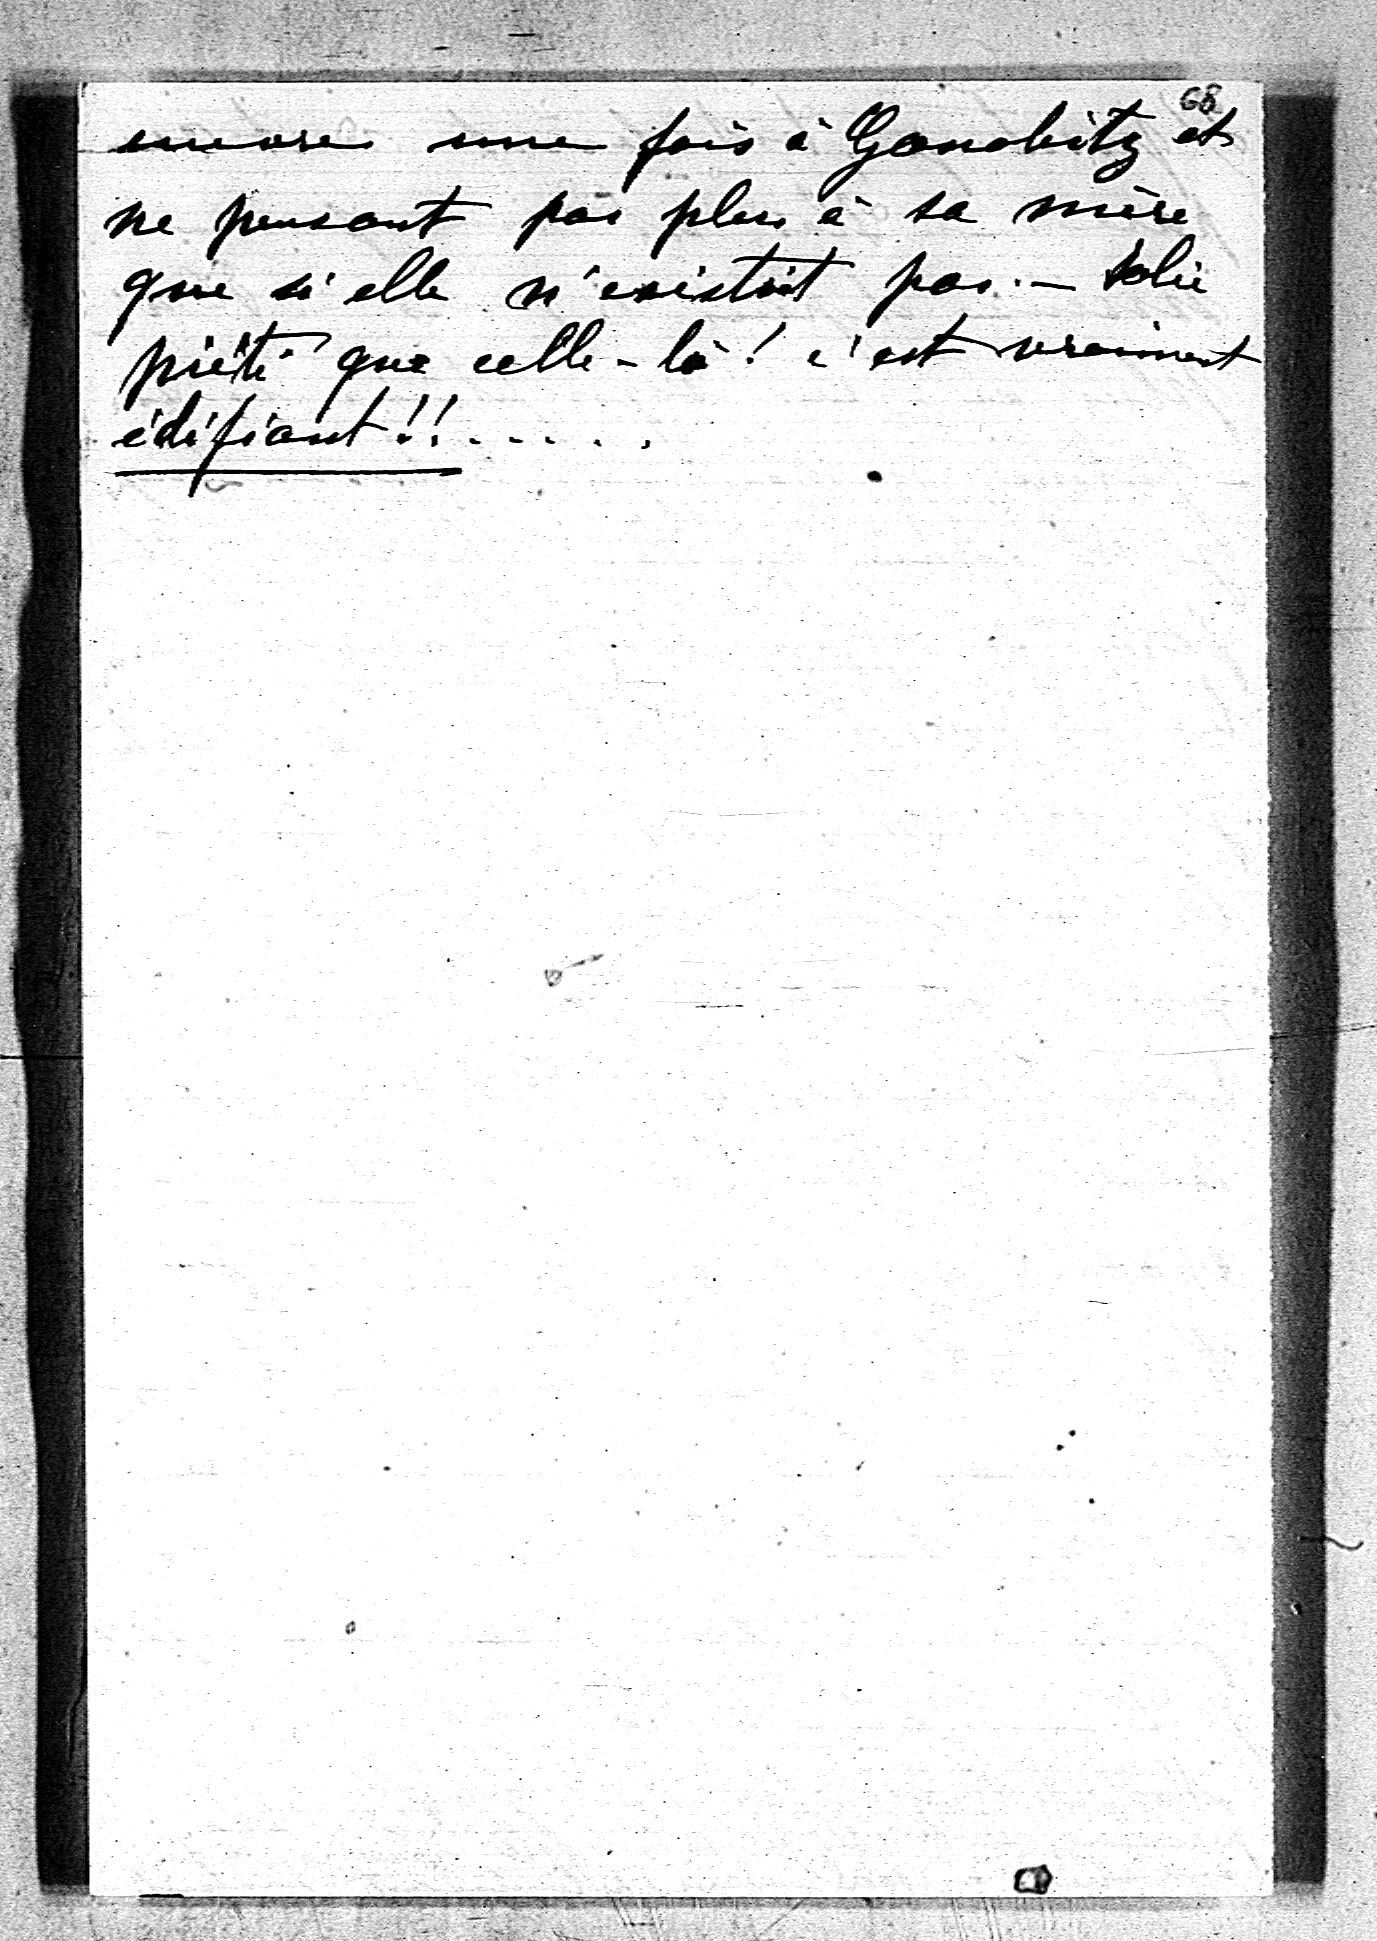 68
encore une fois à Gonobitz et
ne pensant pas plus à sa mère
que si elle n'existait pas. — Jolie
piété que celle-là! c'est vraiment
édifiant!!......